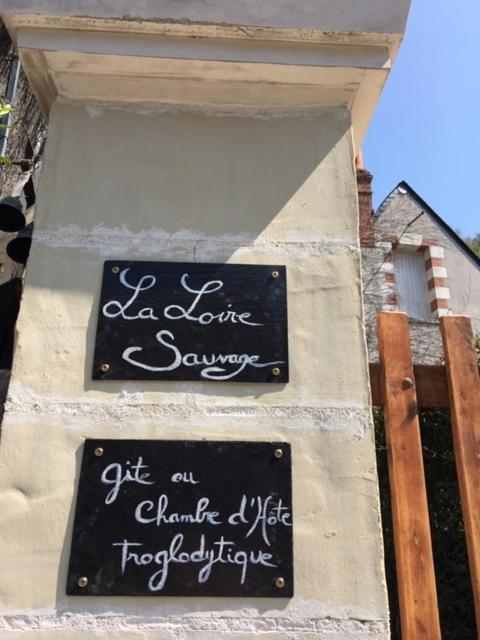 La Loire
Sauvage
gîte ou
chambre d'Hôte
troglodytique